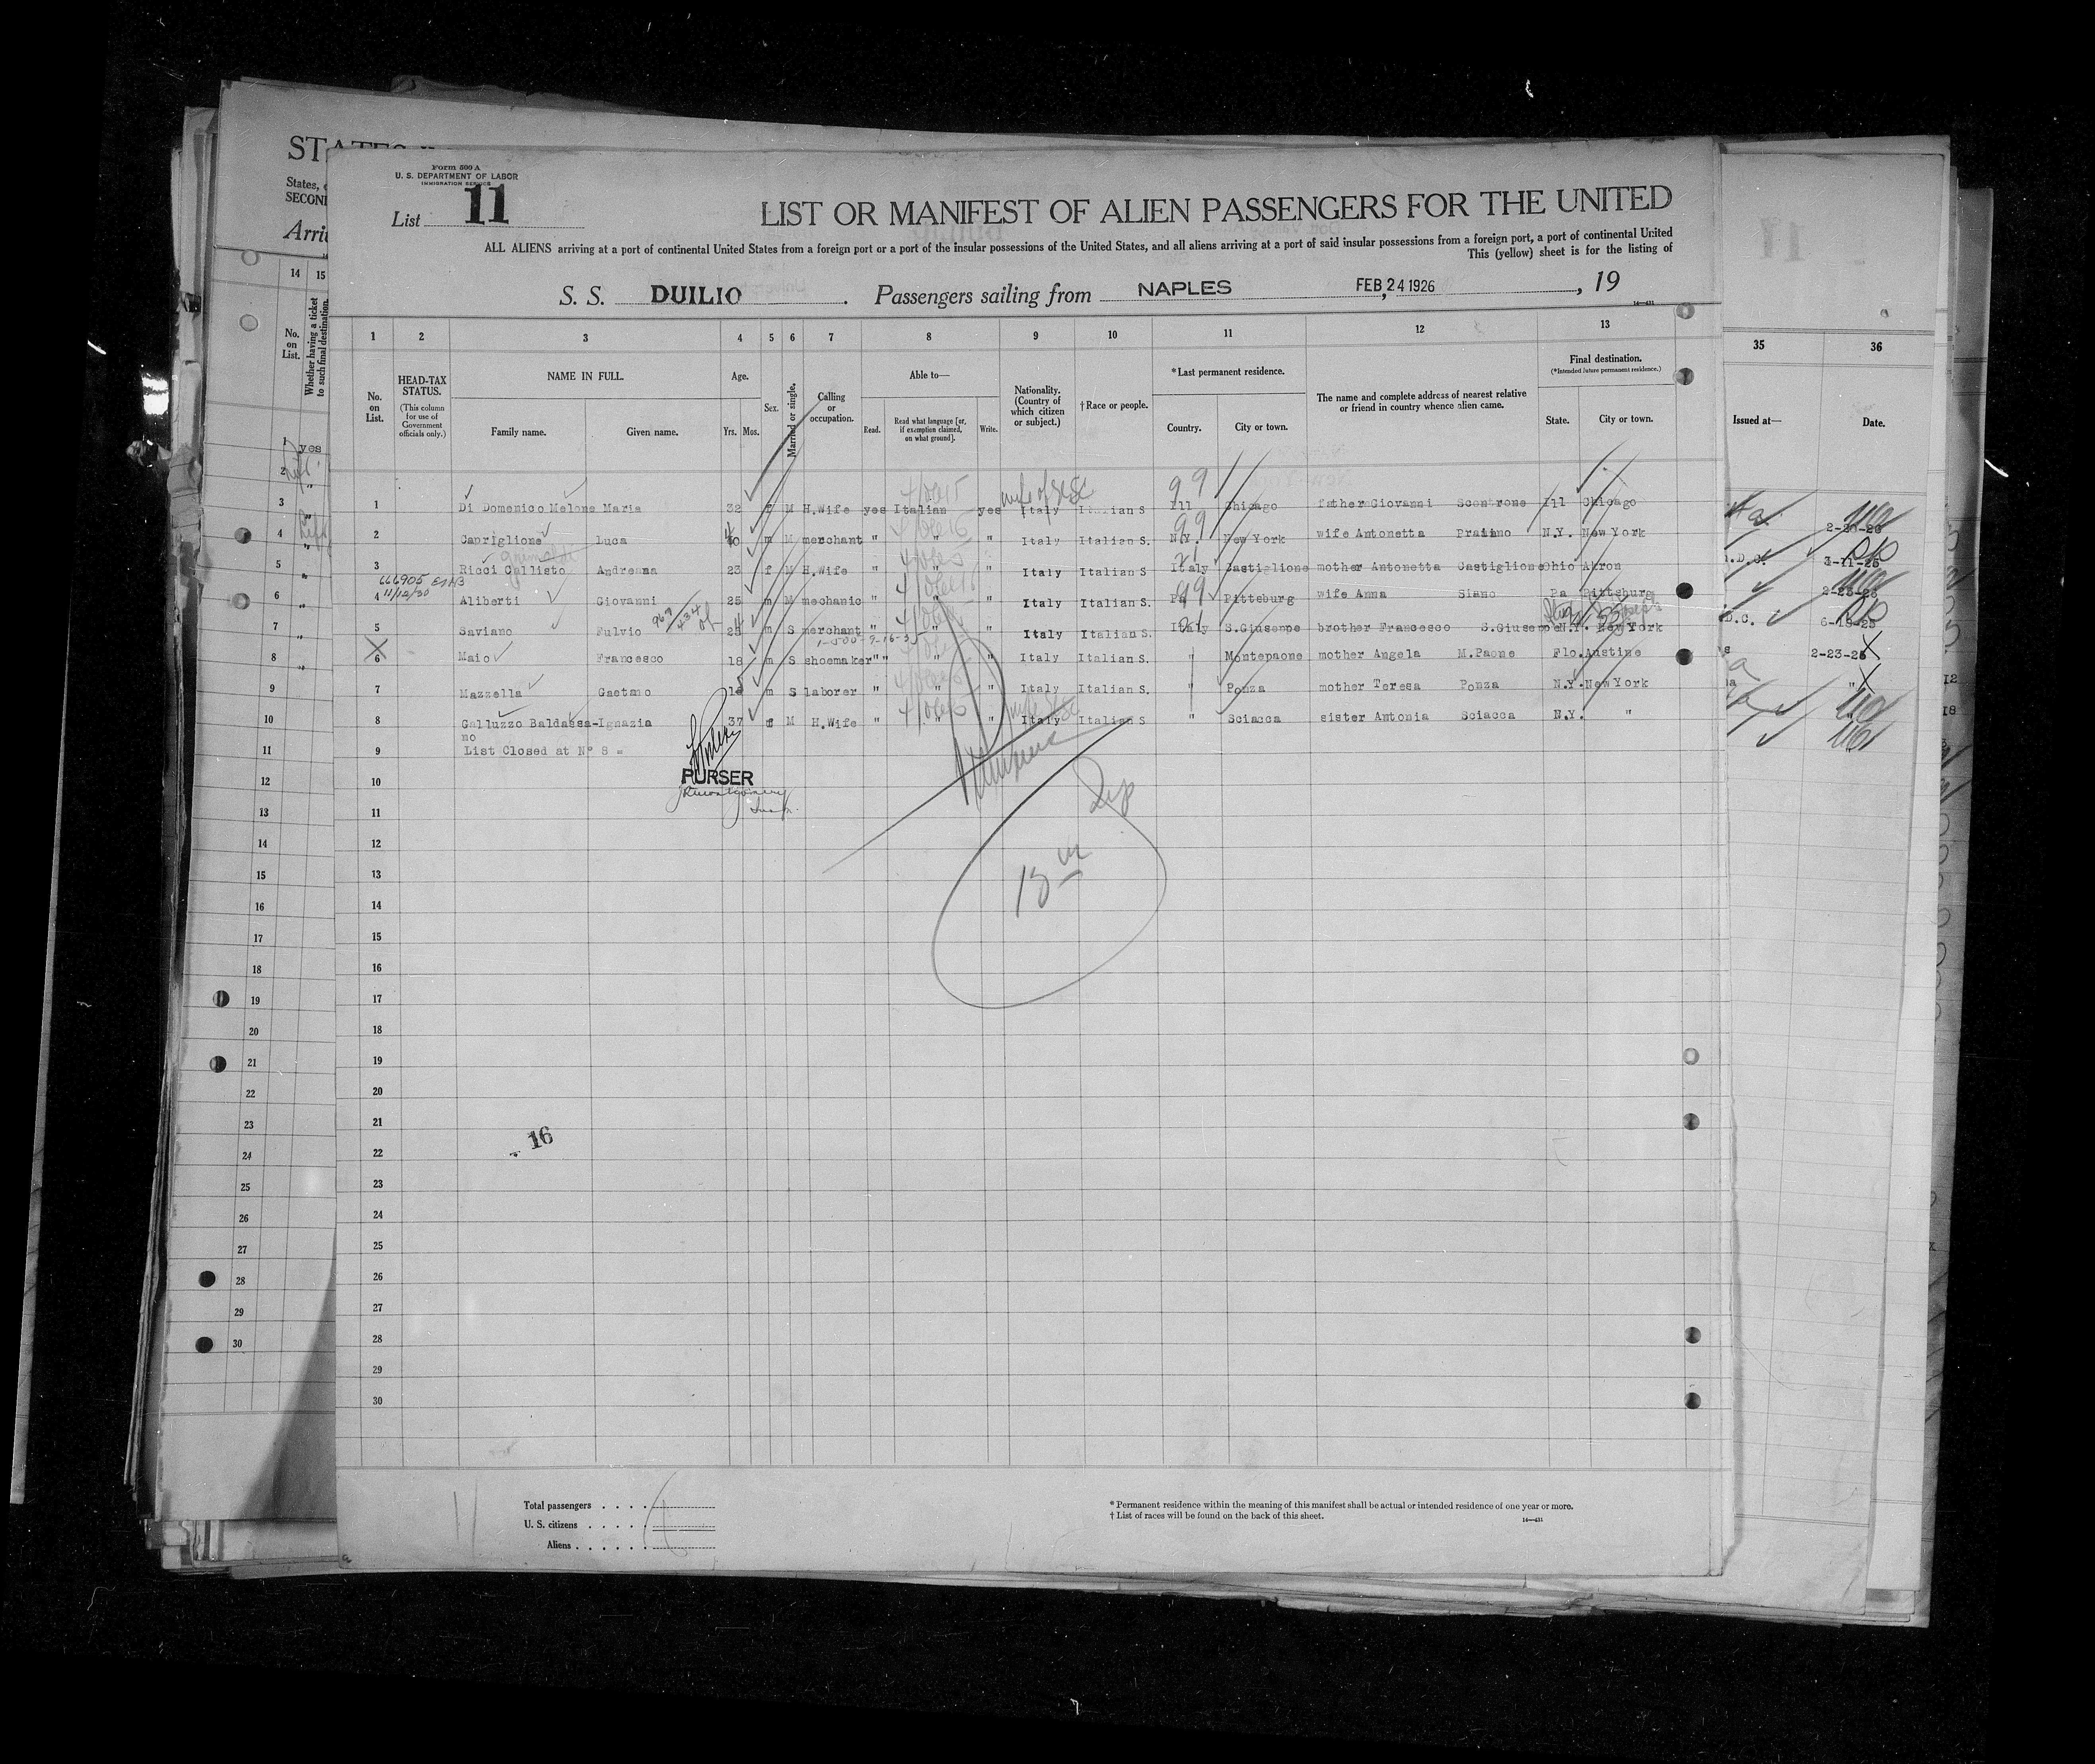 STATES
States,
SECOND
Arri
14 15
No.
on
List.
Whether having a ticket
to such final destination.
1 yes
2 "
3 "
4 "
5 "
6 "
7 "
8 "
9
10
11
12
13
14
15
16
17
18
19
20
21
22
23
24
25
26
27
28
29
30
Form 500 A
U. S. DEPARTMENT OF LABOR
IMMIGRATION SERVICE
List 11
LIST OR MANIFEST OF ALIEN PASSENGERS FOR THE UNITED
ALL ALIENS arriving at a port of continental United States from a foreign port or a port of the insular possessions of the United States, and all aliens arriving at a port of said insular possessions from a foreign port, a port of continental United
This (yellow) sheet is for the listing of
S. S. DUILIO . Passengers sailing from NAPLES FEB 24 1926 , 19
14—431
1 2 3 4 5 6 7 8 9 10 11 12 13
No.
on
List.
HEAD-TAX
STATUS.
(This column
for use of
Government
officials only.)
NAME IN FULL.
Family name. Given name.
Age.
Yrs. Mos.
Sex.
Married or single.
Calling
or
occupation.
Able to—
Read.
Read what language [or,
if exemption claimed,
on what ground].
Write.
Nationality.
(Country of
which citizen
or subject.)
† Race or people.
* Last permanent residence.
Country. City or town.
The name and complete address of nearest relative
or friend in country whence alien came.
Final destination.
(*Intended future permanent residence.)
State. City or town.
35 36
Issued at— Date.
wife of USC
99
1 Di Domenico Melone Maria 32 f M H.Wife yes Italian yes Italy Italian S Ill Chicago father Giovanni Scontrone Ill Chicago
99
2 Capriglione Luca 40 m M merchant " " " Italy Italian S. N.Y. New York wife Antonetta Praiano N.Y. New York
Grimaldi
3 Ricci Callisto Andreana 23 f M H.Wife " " " Italy Italian S. Italy Castiglione mother Antonetta Castiglione Ohio Akron
666905
11/12/30
99
4 Aliberti Giovanni 25 m M mechanic " " " Italy Italian S. Pa Pitteburg wife Anna Siano Pa Pittsburg
5 Saviano Fulvio 25 m S merchant " " " Italy Italian S. Italy S.Giuseppe brother Francesco S.Giuseppe N.Y. New York
6 Maio Francesco 18 m S shoemaker " " " " Italy Italian S. " Montepaone mother Angela M.Paone Flo. Austine
7 Mazzella Gaetano m S laborer " " " Italy Italian S. " Ponza mother Teresa Ponza N.Y. New York
8 Galluzzo Baldassa-Ignazia 37 f M H.Wife " " " Italy Italian S " Sciacca sister Antonia Sciacca N.Y. "
mo
9 List Closed at N° 8 =
PURSER
10
11
12
13
14
15
16
17
18
19
20
21
22
23
24
25
26
27
28
29
30
16
2-20-26
D.C.
2-23-26
D.C.
2-23-26
"
12
18
11
Total passengers . . . .
U. S. citizens . . . . .
Aliens . . . . . .
* Permanent residence within the meaning of this manifest shall be actual or intended residence of one year or more.
† List of races will be found on the back of this sheet.
14—431